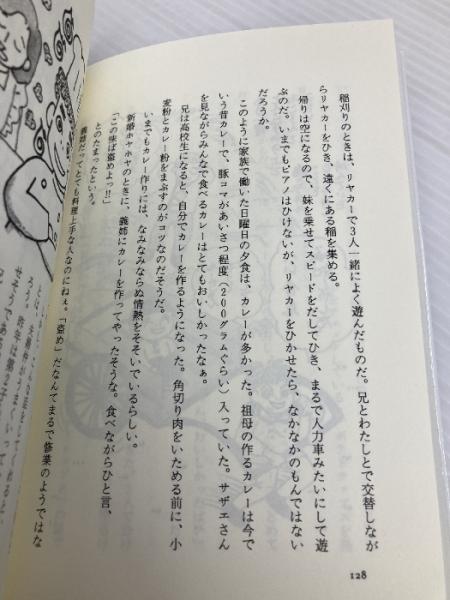 稲刈りのときは、リヤカーで3人一緒によく遊んだものだ。兄とわたしとで交替しなが
らリヤカーをひき、遠くにある稲を集める。
帰りは空になるので、妹を乗せてスピードをだしてひき、まるで人力車みたいにして遊
ぶのだ。いまでもピアノはひけないが、リヤカーをひかせたら、なかなかのもんではない
だろうか。
このように家族で働いた日曜日の夕食は、カレーが多かった。祖母の作るカレーは今で
いう昔カレーで、豚コマがあいさつ程度（200グラムぐらい）入っていた。サザエさん
を見ながらみんなで食べるカレーはとてもおいしかったなぁ。
兄は高校生になると、自分でカレーを作るようになった。角切り肉をいためる前に、小
麦粉とカレー粉をまぶすのがコツなのだそうだ。
いまでもカレー作りには、なみなみならぬ情熱をそそいでいるらしい。
新婚ホヤホヤのときに、義姉にカレーを作ってやったそうな。食べながらひと言、
「この味ば盗めよっ!!」
とのたまったという。
義姉だってとても料理上手な人なのにねぇ。「盗め」だなんてまるで修業のようではな
128